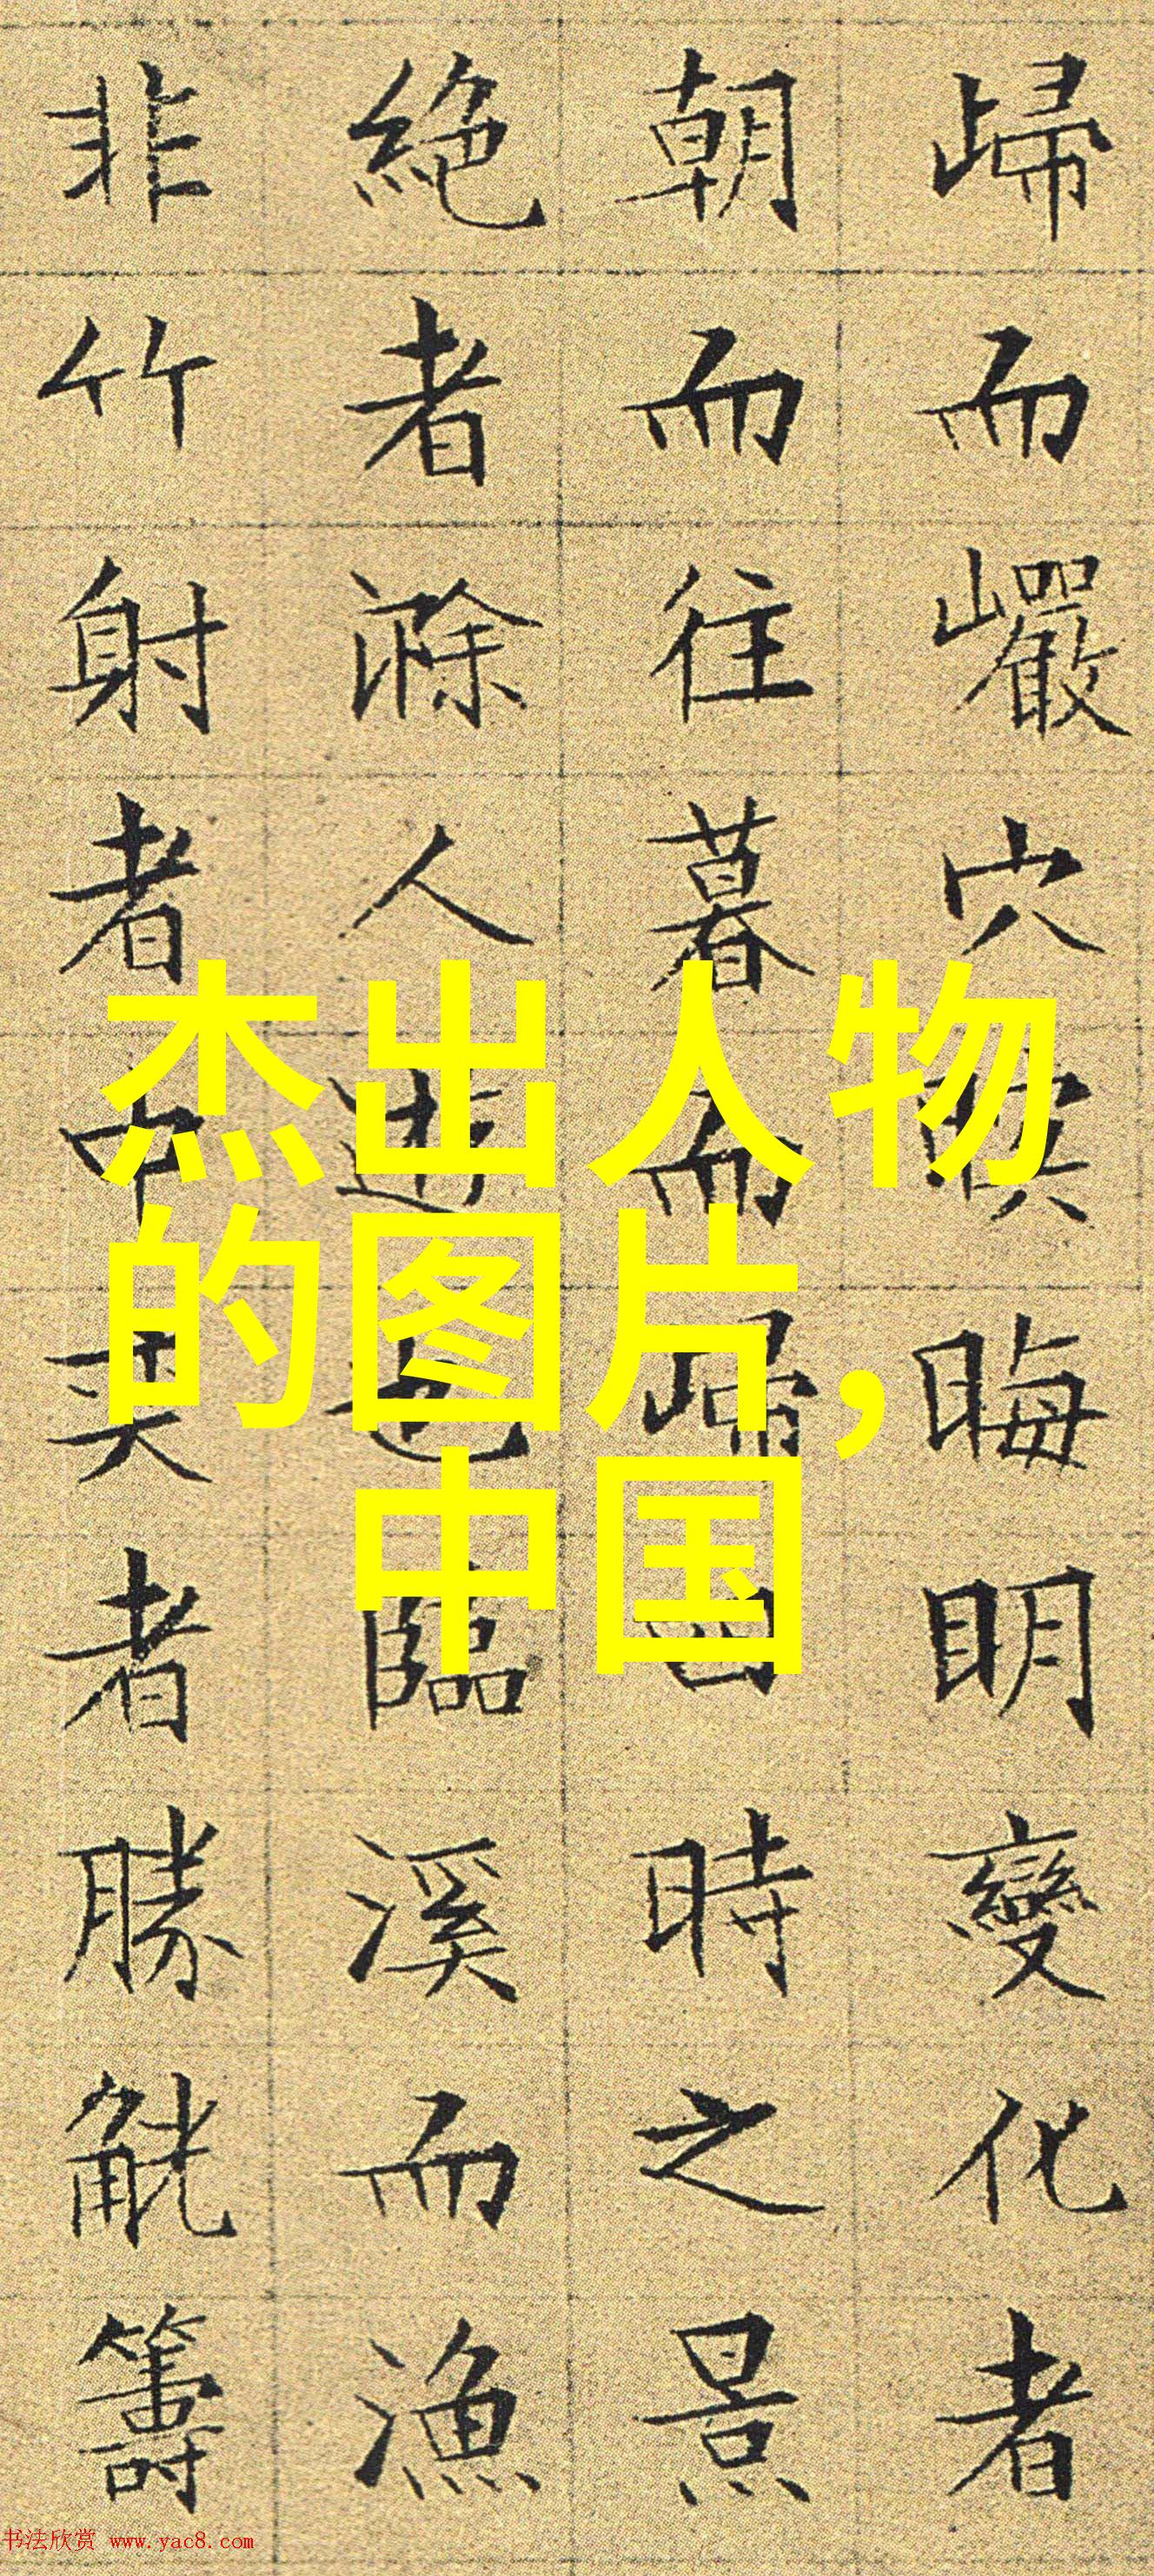 㱕而巖穴暝晦明變化者
朝而往暮而㱕四時之景
絶者滁人遊也臨溪而漁
非竹射者中奕者勝觥籌
杰出人物
的图片，
中国
书法欣赏 www.yac8.com